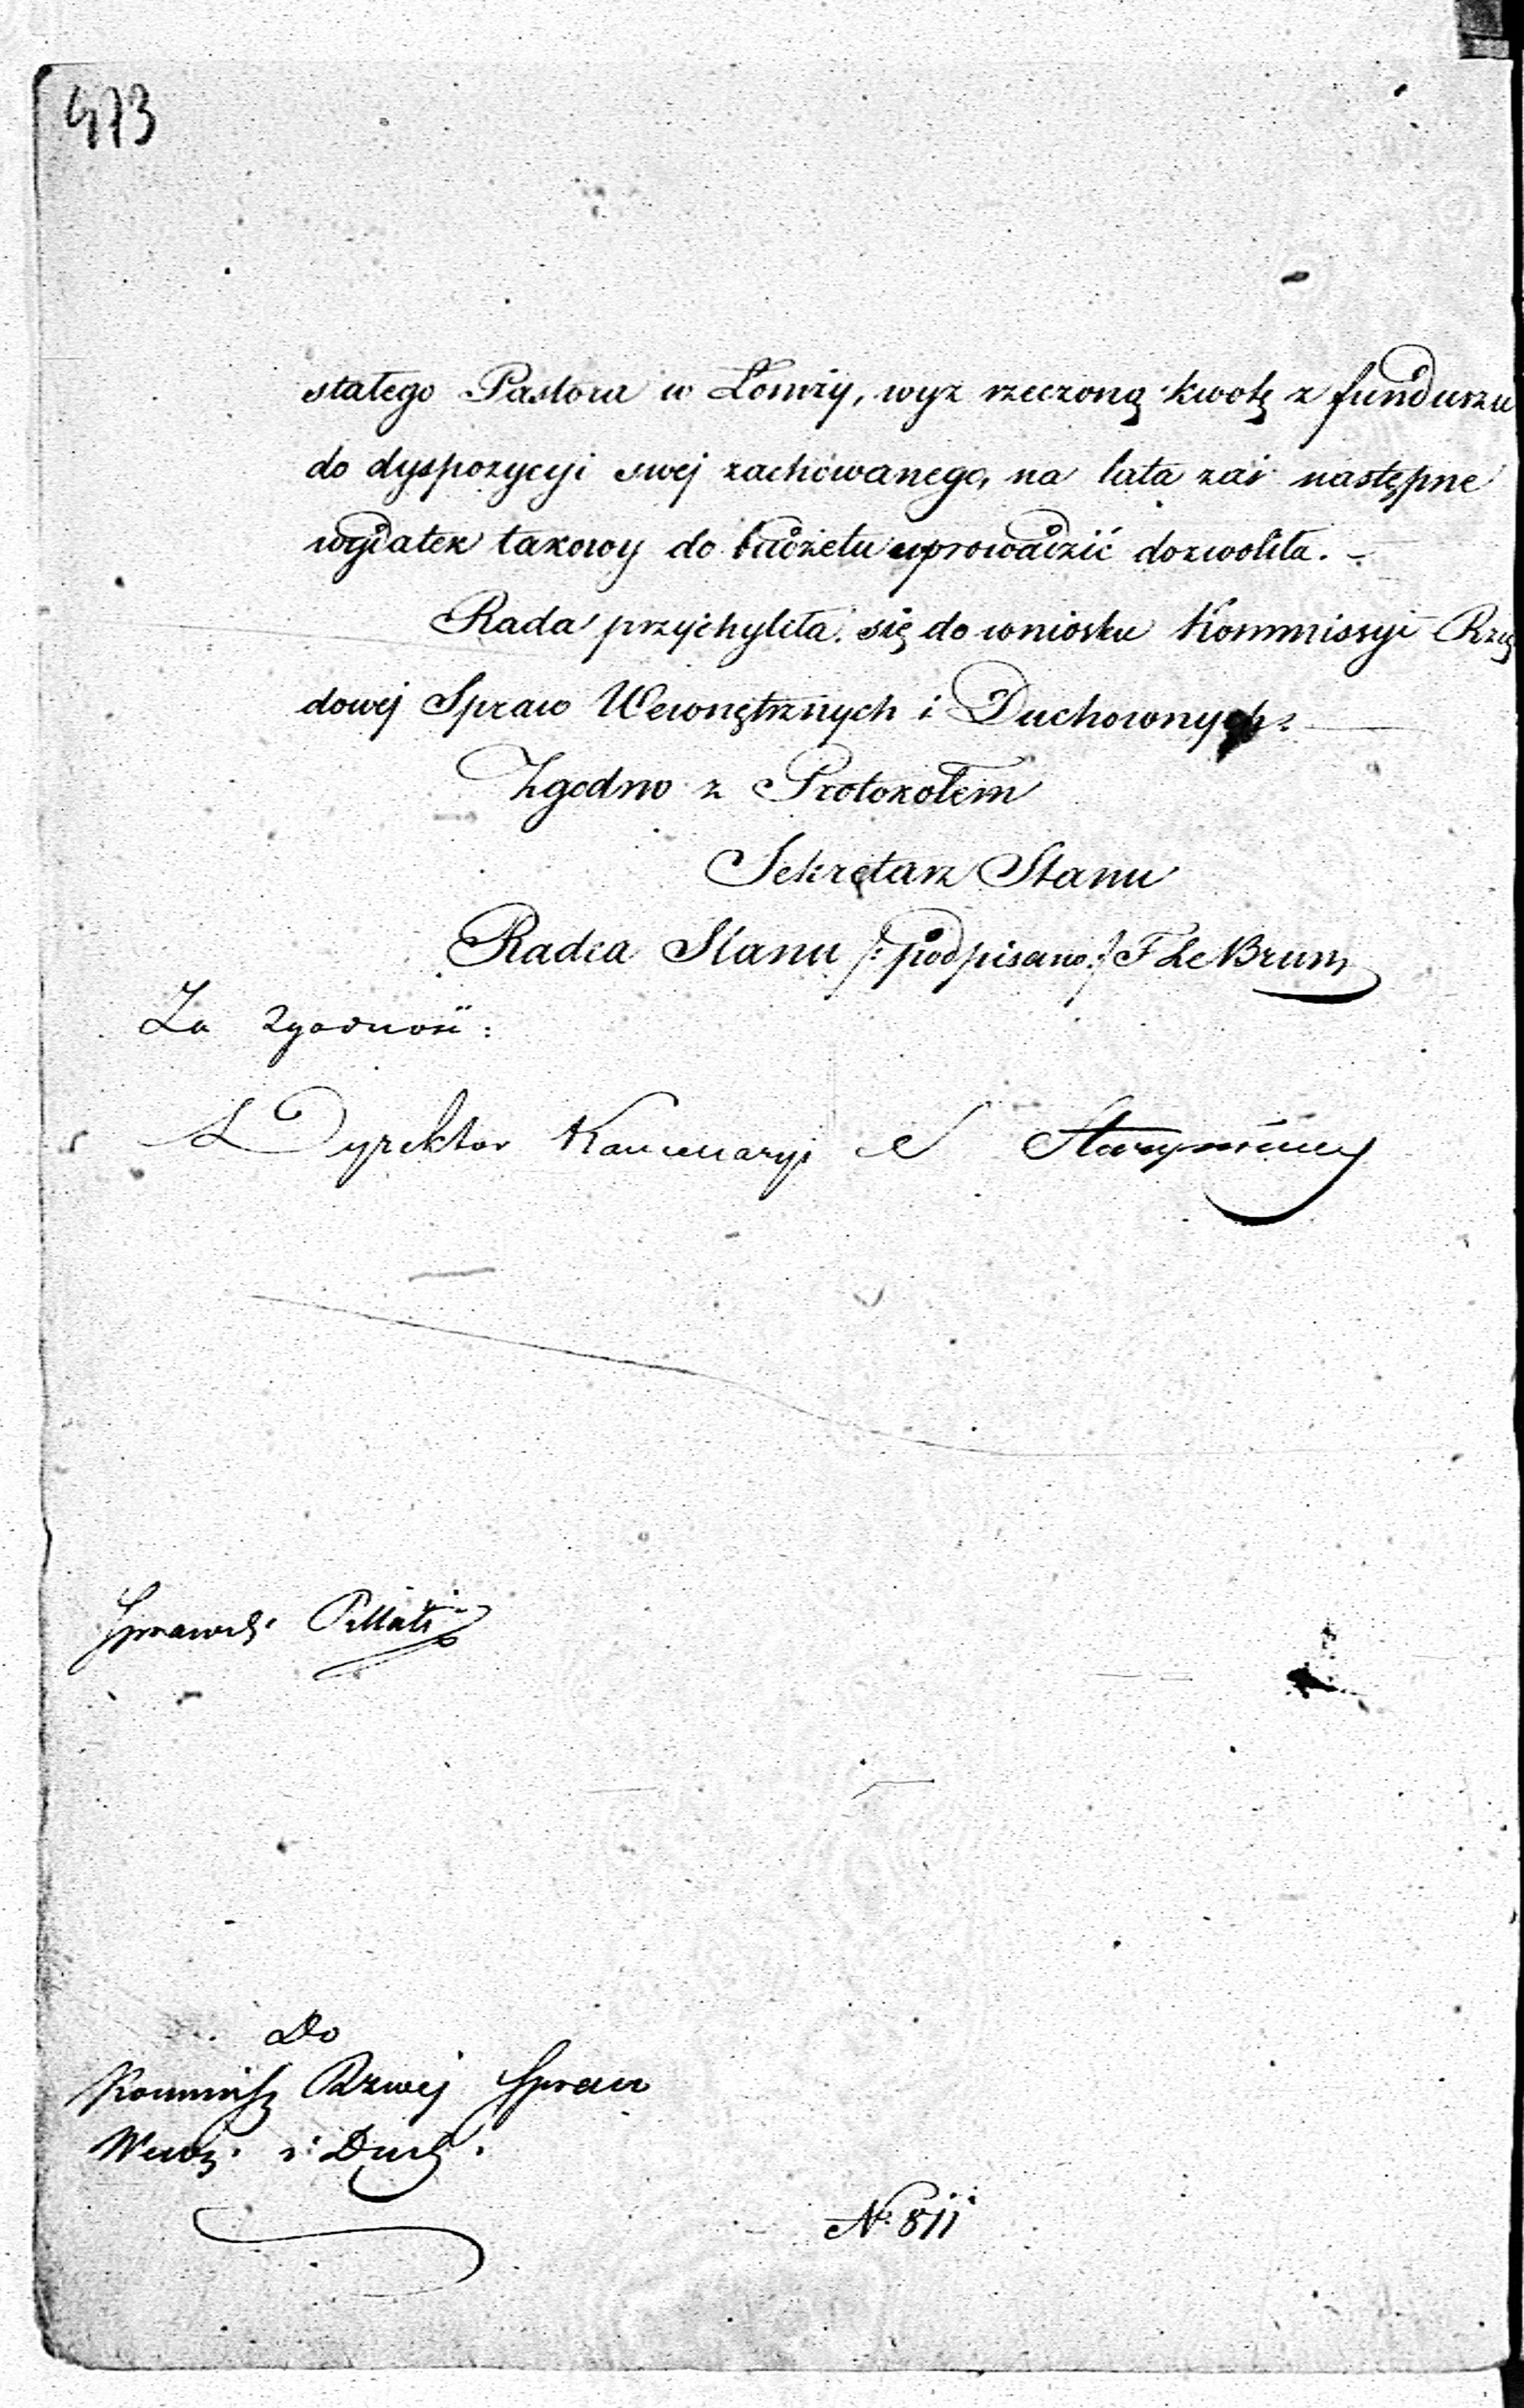 473
stałego Pastora w Łomży, wyż rzeczoną kwotę z funduszu
do dyspozycyi swej zachowanego, na lata zaś następne
wydatek takowy do budżetu wprowadzić dozwoliła. –
Rada przychyliła się do wniosku Kommissyi Rzą
dowej Spraw Wewnętrznych i Duchownych. –
Zgodno z Protokołem
Sekretarz Stanu
Radca Stanu /: podpisano :/ F Le Brun
Za zgodność:
Dyrektor Kancellaryi
Sprawdz. Pillati
Do
Kommissy Rzwej Spraw
Wewn. i Duch.
No 811